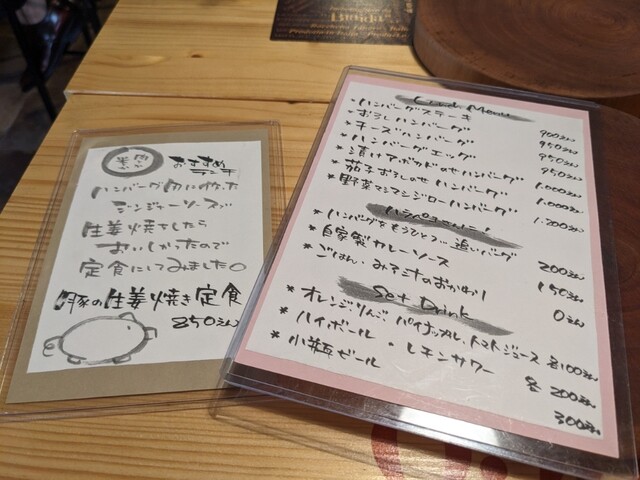 おすすめ
ランチ
ハンバーグ用に作った
ジンジャーソースで
生姜焼きしたら
おいしかったので
定食にしてみました。
豚の生姜焼き定食
850えん
Food Menu
・ハンバーグステーキ 900えん
・おろしハンバーグ 950えん
・チーズハンバーグ 950えん
・ハンバーグエッグ 950えん
・漬けアボカドのせハンバーグ 1.000えん
・茄子おろしのせハンバーグ 1.000えん
・野菜マシマシジローハンバーグ 1.200えん
* ハンバーグをもうひとつ 追いバーグ 200えん
* 自家製カレーソース 150えん
* ごはん・みそ汁のおかわり 0えん
Set Drink
* オレンジ りんご パイナップル トマトジュース 各100えん
* ハイボール ・ レモンサワー 各 200えん
* 小瓶ビール 300えん